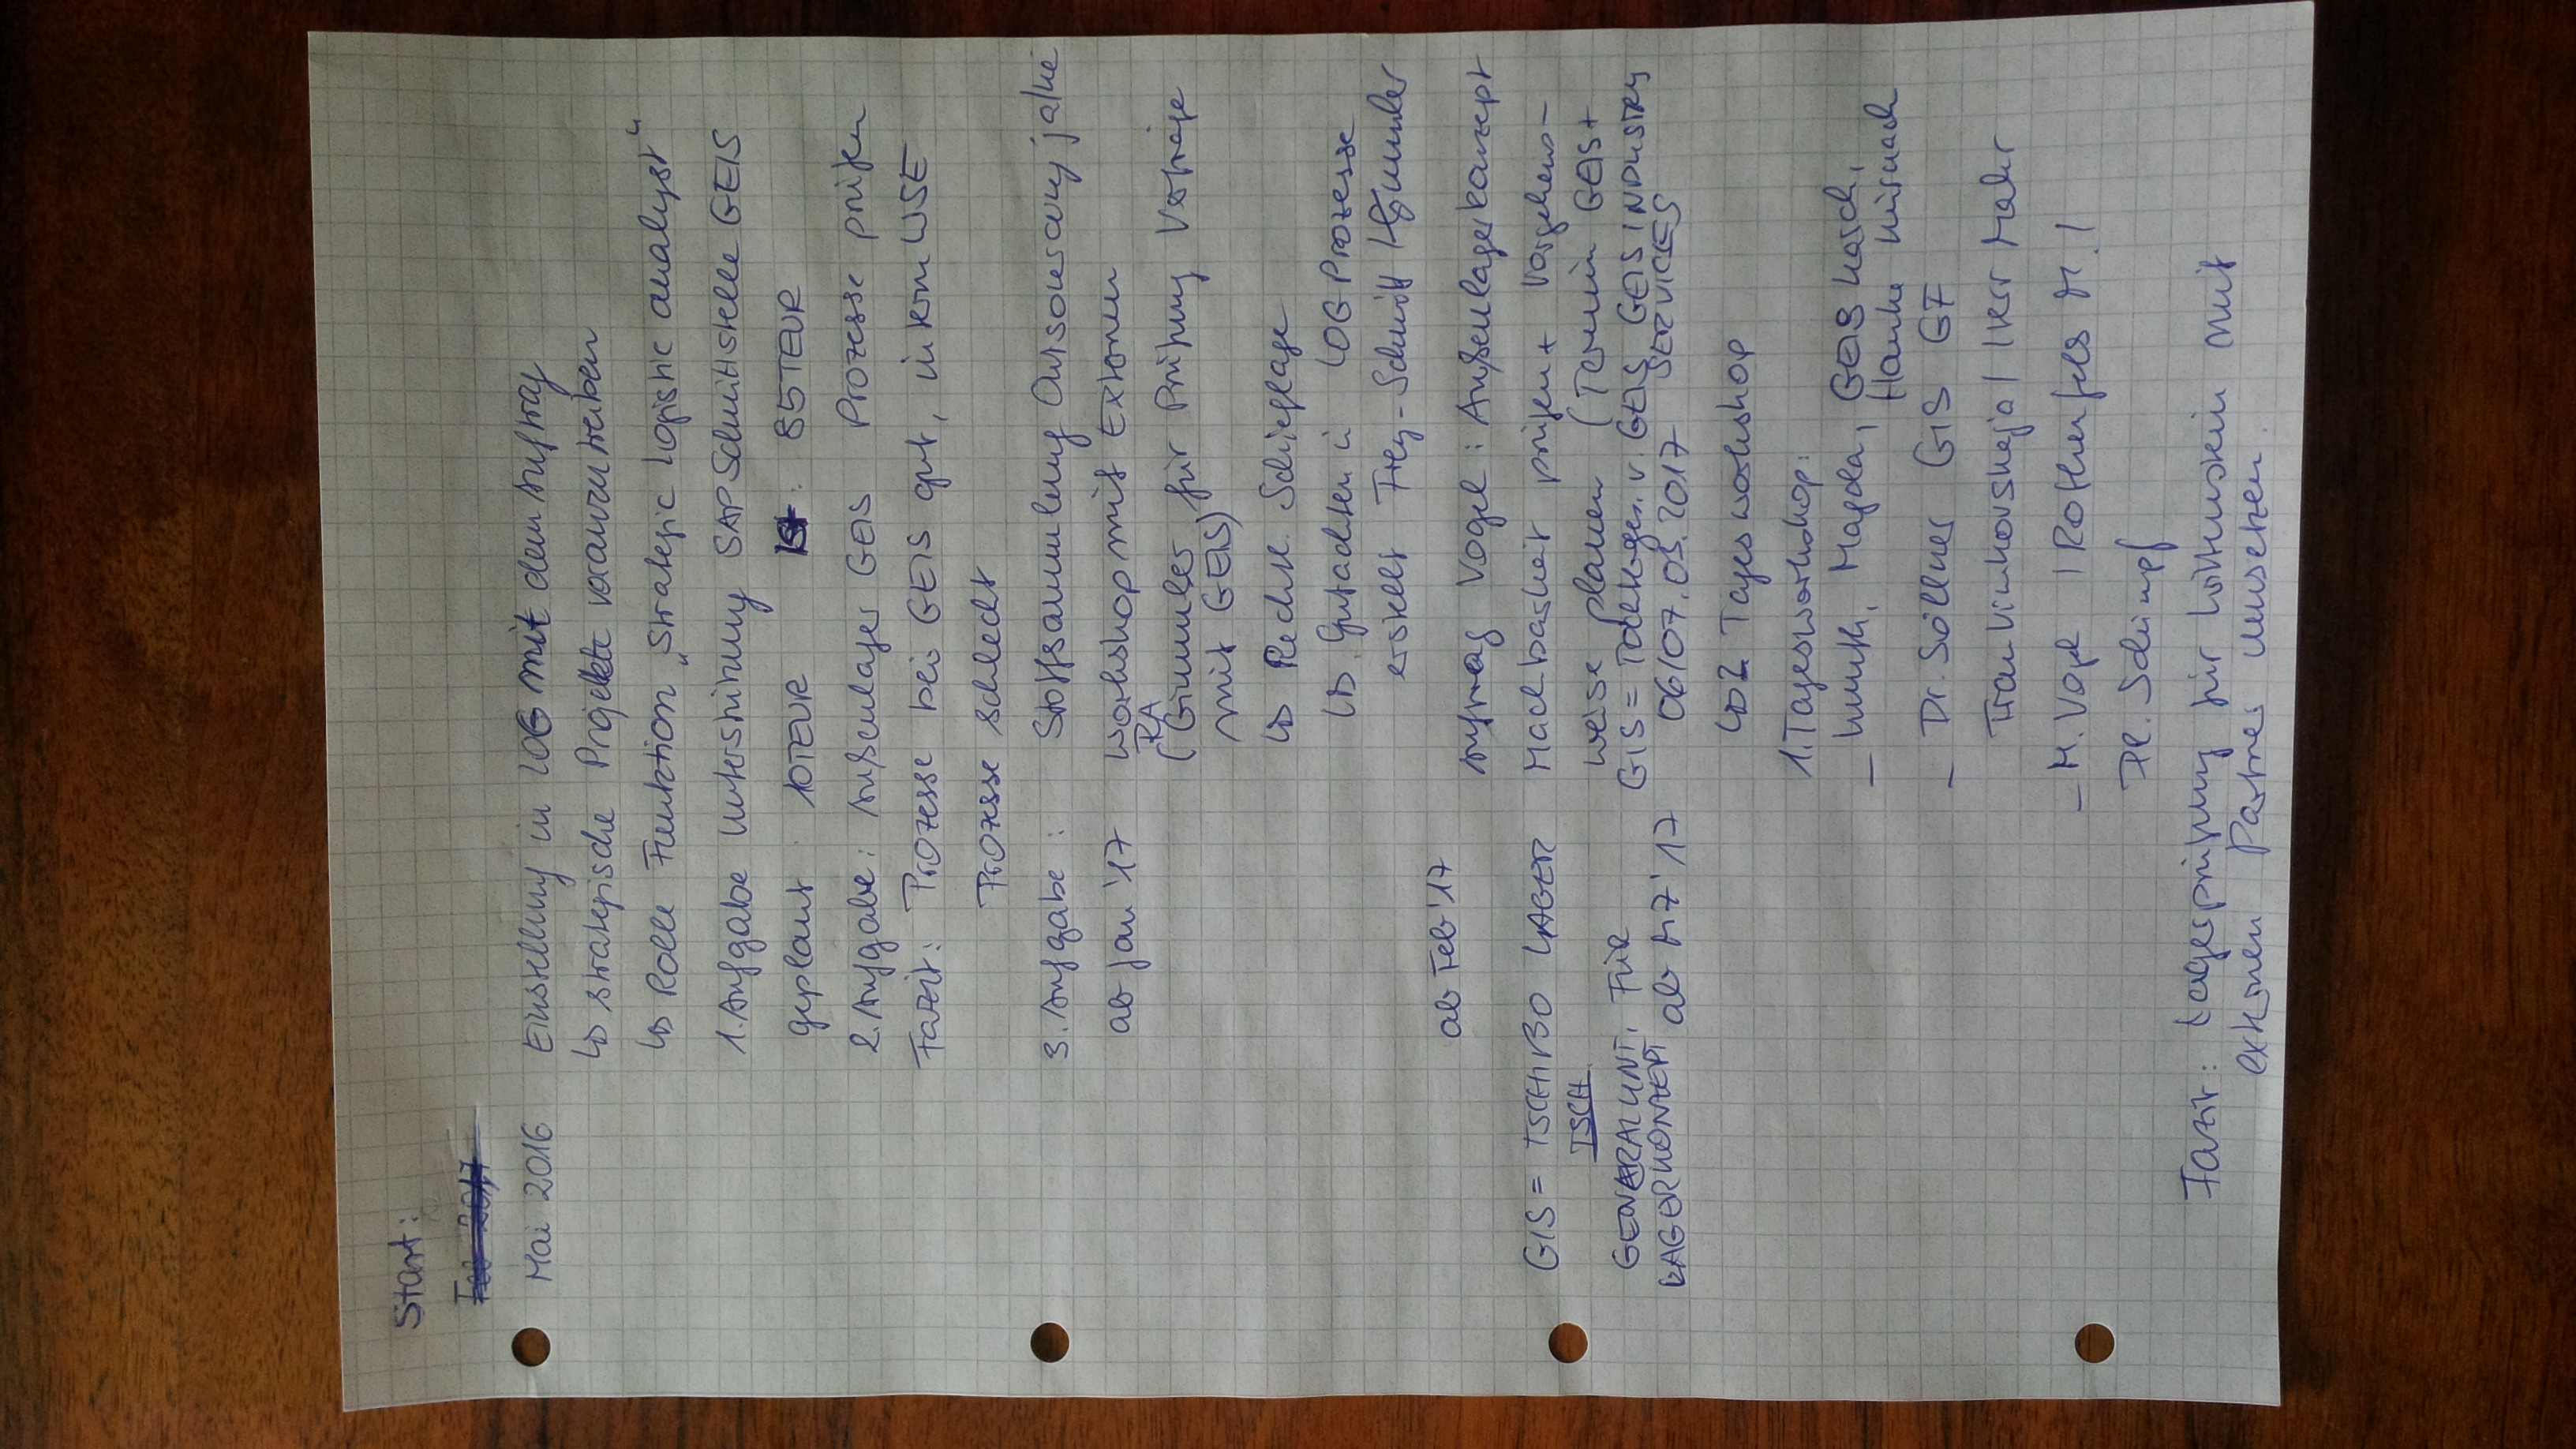 Start:
Mai 2016 Einstellung in LOG mit dem Auftrag
↳ strategische Projekte voranzutreiben
↳ Rolle Funktion „Strategic Logistic Analyst"
1. Aufgabe Unterstützung SAP Schnittstelle GEIS
geplant: 10TEUR Ist: 85TEUR
2. Aufgabe: Außenlager GEIS Prozesse prüfen
Fazit: Prozesse bei GEIS gut, intern WSE
Prozesse schlecht
3. Aufgabe: Stoffsammlung Outsourcing ja/nein
ab Jan '17 Workshop mit Externen
(RA Gimmler für Prüfung Verträge
mit GEIS)
↳ Rechtl. Schieflage
↳ Gutachten ü LOG Prozesse
erstellt Frey-Schmidt / Gimmler
ab Feb '17 Auftrag Vogel: Außenlagerkonzept
GIS = TSCHIBO LAGER Machbarkeit prüfen + Vorgehens-
TSCH weise planen (Termin GEIS +
GENERALUNT. FÜR GIS = Tochterges. v. GEIS GEIS INDUSTRY
SERVICES
LAGERKONZEPT ab M7 '17 06/07.03.2017
↳ 2 Tagesworkshop
1. Tagesworkshop:
- Muth, Magda, GEIS Hasch,
Hauke
- Dr. Söllner GIS GF
Frau / Herr Mahr
- M. Vogel / Rothenfels M. /
Fr. Schimpf
Fazit: Lagesprüfung für Wittenstein mit
externen Partner umsetzen.